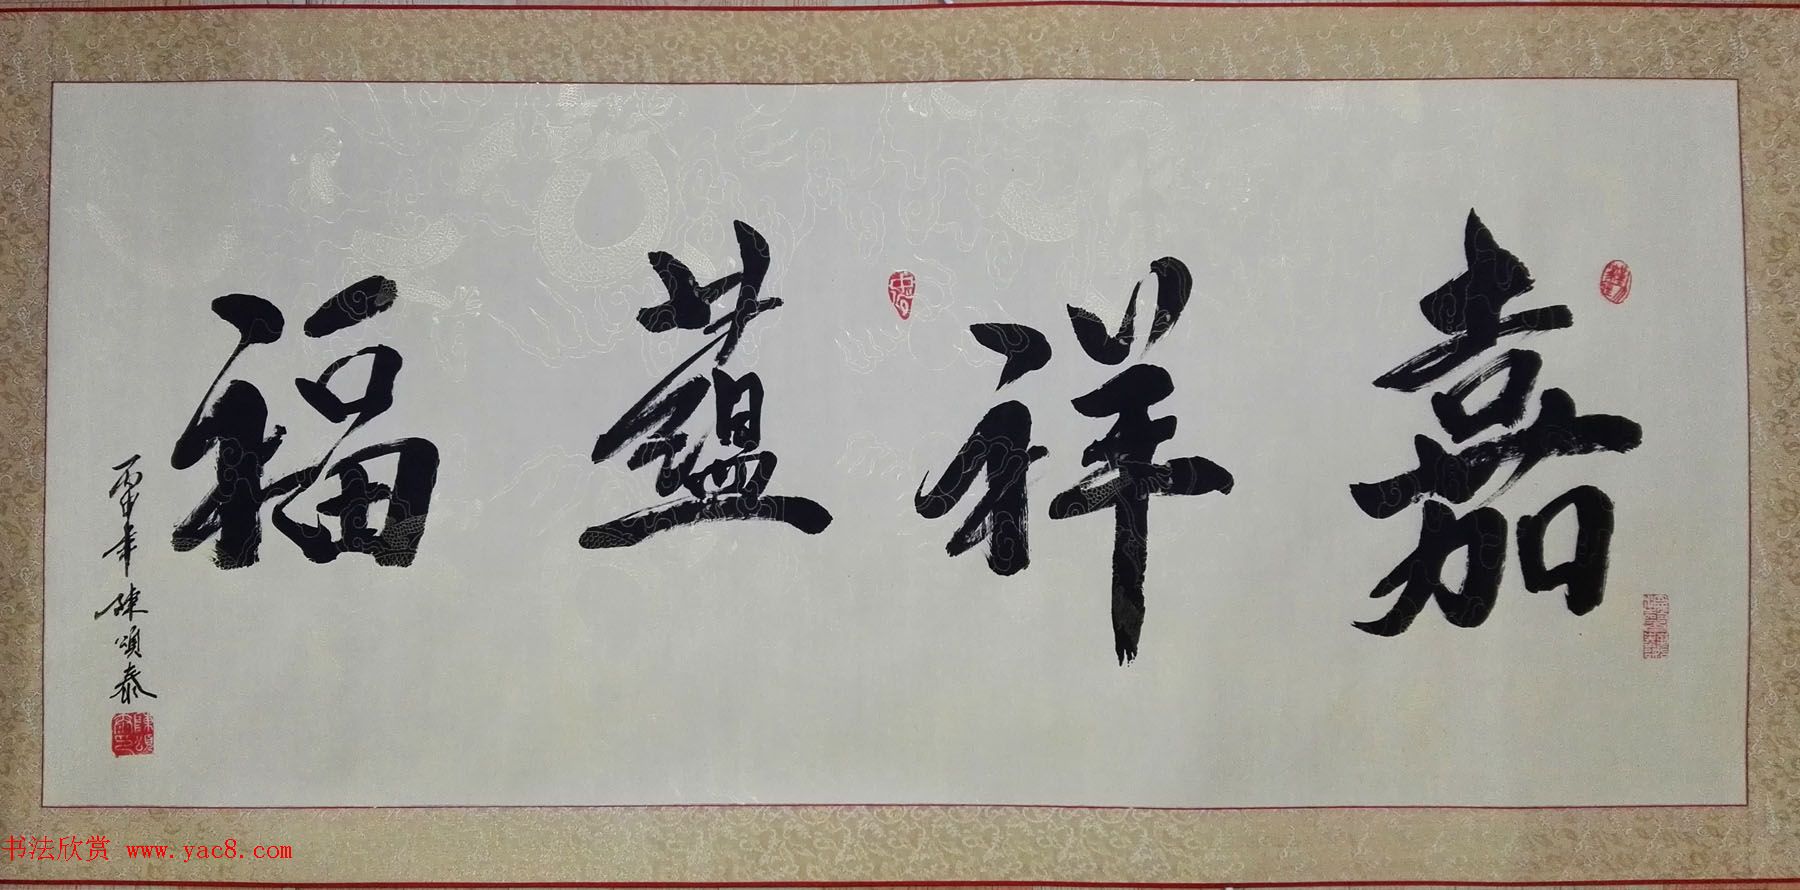 嘉祥蕴福
丙申年陳頌泰
陳頌泰印
书法欣赏 www.yac8.com